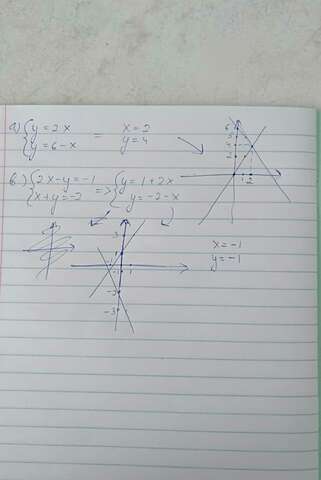 а) { y = 2x
{ y = 6 - x
= x = 2
y = 4
в) { 2x - y = -1
{ x + y = -2
=> { y = 1 + 2x
y = -2 - x
x = -1
y = -1
6
5
4
3
2
1 2
3
1
1
-1
-2
-3